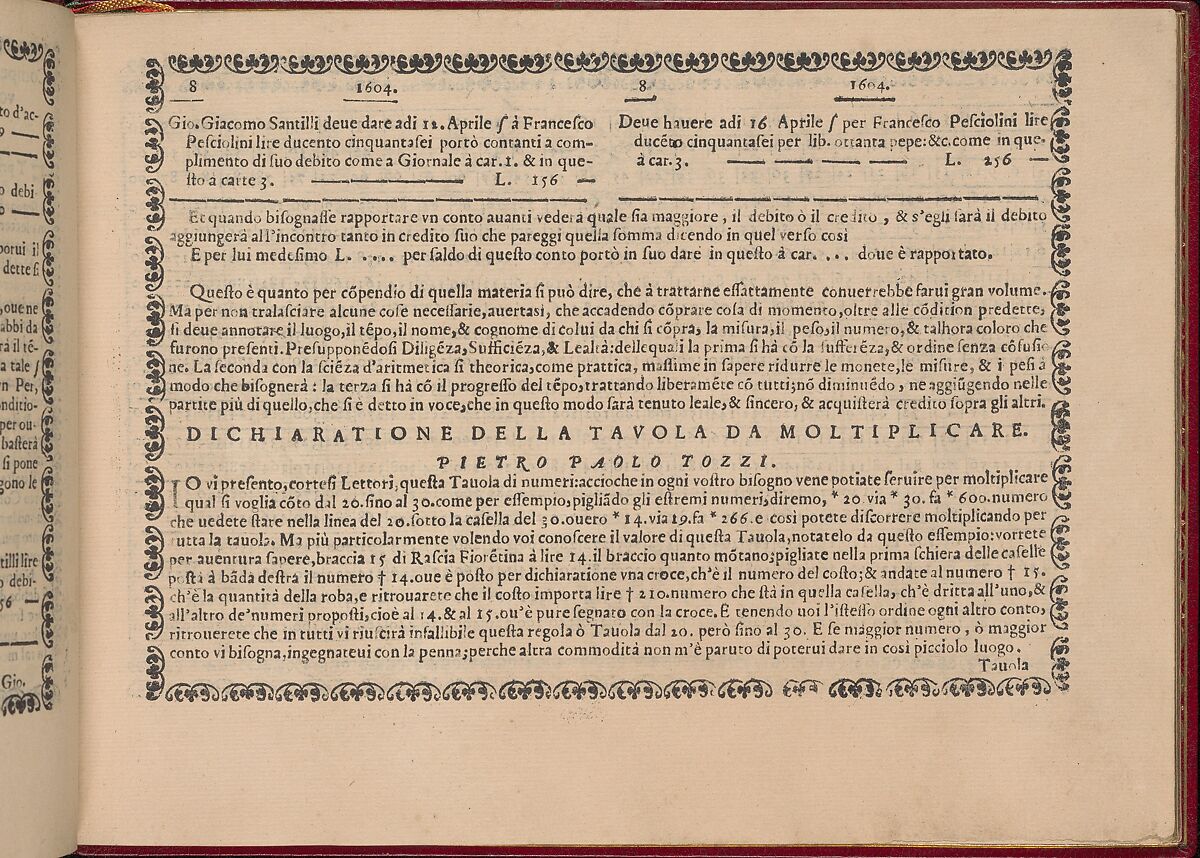 to d'ac-
9
o debi-
o
portui il
dette si
,oue ne
abbi da
rà il tẽ-
a tale ſ
n Per,
nditio-
per ou-
basterà
si pone
gono le
tilli lire
o debi-
56
Gio.
8 1604.
Gio. Giacomo Santilli deue dare adi 12. Aprile ſ à Francesco
Pesciolini lire ducento cinquantasei portò contanti a com-
plimento di suo debito come a Giornale à car. 1. & in que-
sto à carte 3. L. 156
8 1604.
Deue hauere adi 16 Aprile ſ per Francesco Pesciolini lire
ducẽto cinquantasei per lib. ottanta pepe: &c. come in que-
à car. 3. L. 256
Et quando bisognasse rapportare vn conto auanti vederà quale sia maggiore, il debito ò il credito, & s'egli sarà il debito
aggiungerà all'incontro tanto in credito suo che pareggi quella somma dicendo in quel verso così
E per lui medesimo L. . . . . . per saldo di questo conto portò in suo dare in questo à car. . . . doue è rapportato.
Questo è quanto per cõpendio di quella materia si può dire, che à trattarne essattamente conuerrebbe farui gran volume.
Ma per non tralasciare alcune cose necessarie, auertasi, che accadendo cõprare cosa di momento, oltre alle cõdition predette,
si deue annotare il luogo, il tẽpo, il nome, & cognome di colui da chi si cõpra, la misura, il peso, il numero, & talhora coloro che
furono presenti. Presupponẽdosi Diligẽza, Sufficiẽza, & Lealtà: delle quali la prima si hà cõ la sufferẽza, & ordine senza cõfusio
ne. La seconda con la sciẽza d'aritmetica sì theorica, come prattica, massime in sapere ridurre le monete, le misure, & i pesi à
modo che bisognerà: la terza si hà cõ il progresso del tẽpo, trattando liberamẽte cõ tutti; nõ diminuẽdo, ne aggiũgendo nelle
partite più di quello, che si è detto in voce, che in questo modo sarà tenuto leale, & sincero, & acquisterà credito sopra gli altri.
DICHIARATIONE DELLA TAVOLA DA MOLTIPLICARE.
PIETRO PAOLO TOZZI.
IO vi presento, cortesi Lettori, questa Tauola di numeri: accioche in ogni vostro bisogno vene potiate seruire per moltiplicare
qual si voglia cõto dal 20. sino al 30. come per essempio, pigliãdo gli estremi numeri, diremo, * 20 via * 30. fa * 600. numero
che uedete stare nella linea del 20. sotto la casella del 30. ouero * 14. via 19. fa * 266. e così potete discorrere moltiplicando per
tutta la tauola. Ma più particolarmente volendo voi conoscere il valore di questa Tauola, notatelo da questo essempio: vorrete
per auentura sapere, braccia 15 di Rascia Fiorẽtina à lire 14. il braccio quanto mõtano; pigliate nella prima schiera delle caselle
posta à bãda destra il numero † 14. oue è posto per dichiaratione vna croce, ch'è il numero del costo; & andate al numero † 15.
ch'è la quantità della roba, e ritrouarete che il costo importa lire † 210. numero che stà in quella casella, ch'è dritta all'uno, &
all'altro de' numeri proposti, cioè al 14. & al 15. ou'è pure segnato con la croce. E tenendo uoi l'istesso ordine ogni altro conto,
ritrouerete che in tutti vi riuscirà infallibile questa regola ò Tauola dal 20. però sino al 30. E se maggior numero, ò maggior
conto vi bisogna, ingegnateui con la penna; perche altra commodità non m'è paruto di poterui dare in così picciolo luogo.
Tauola